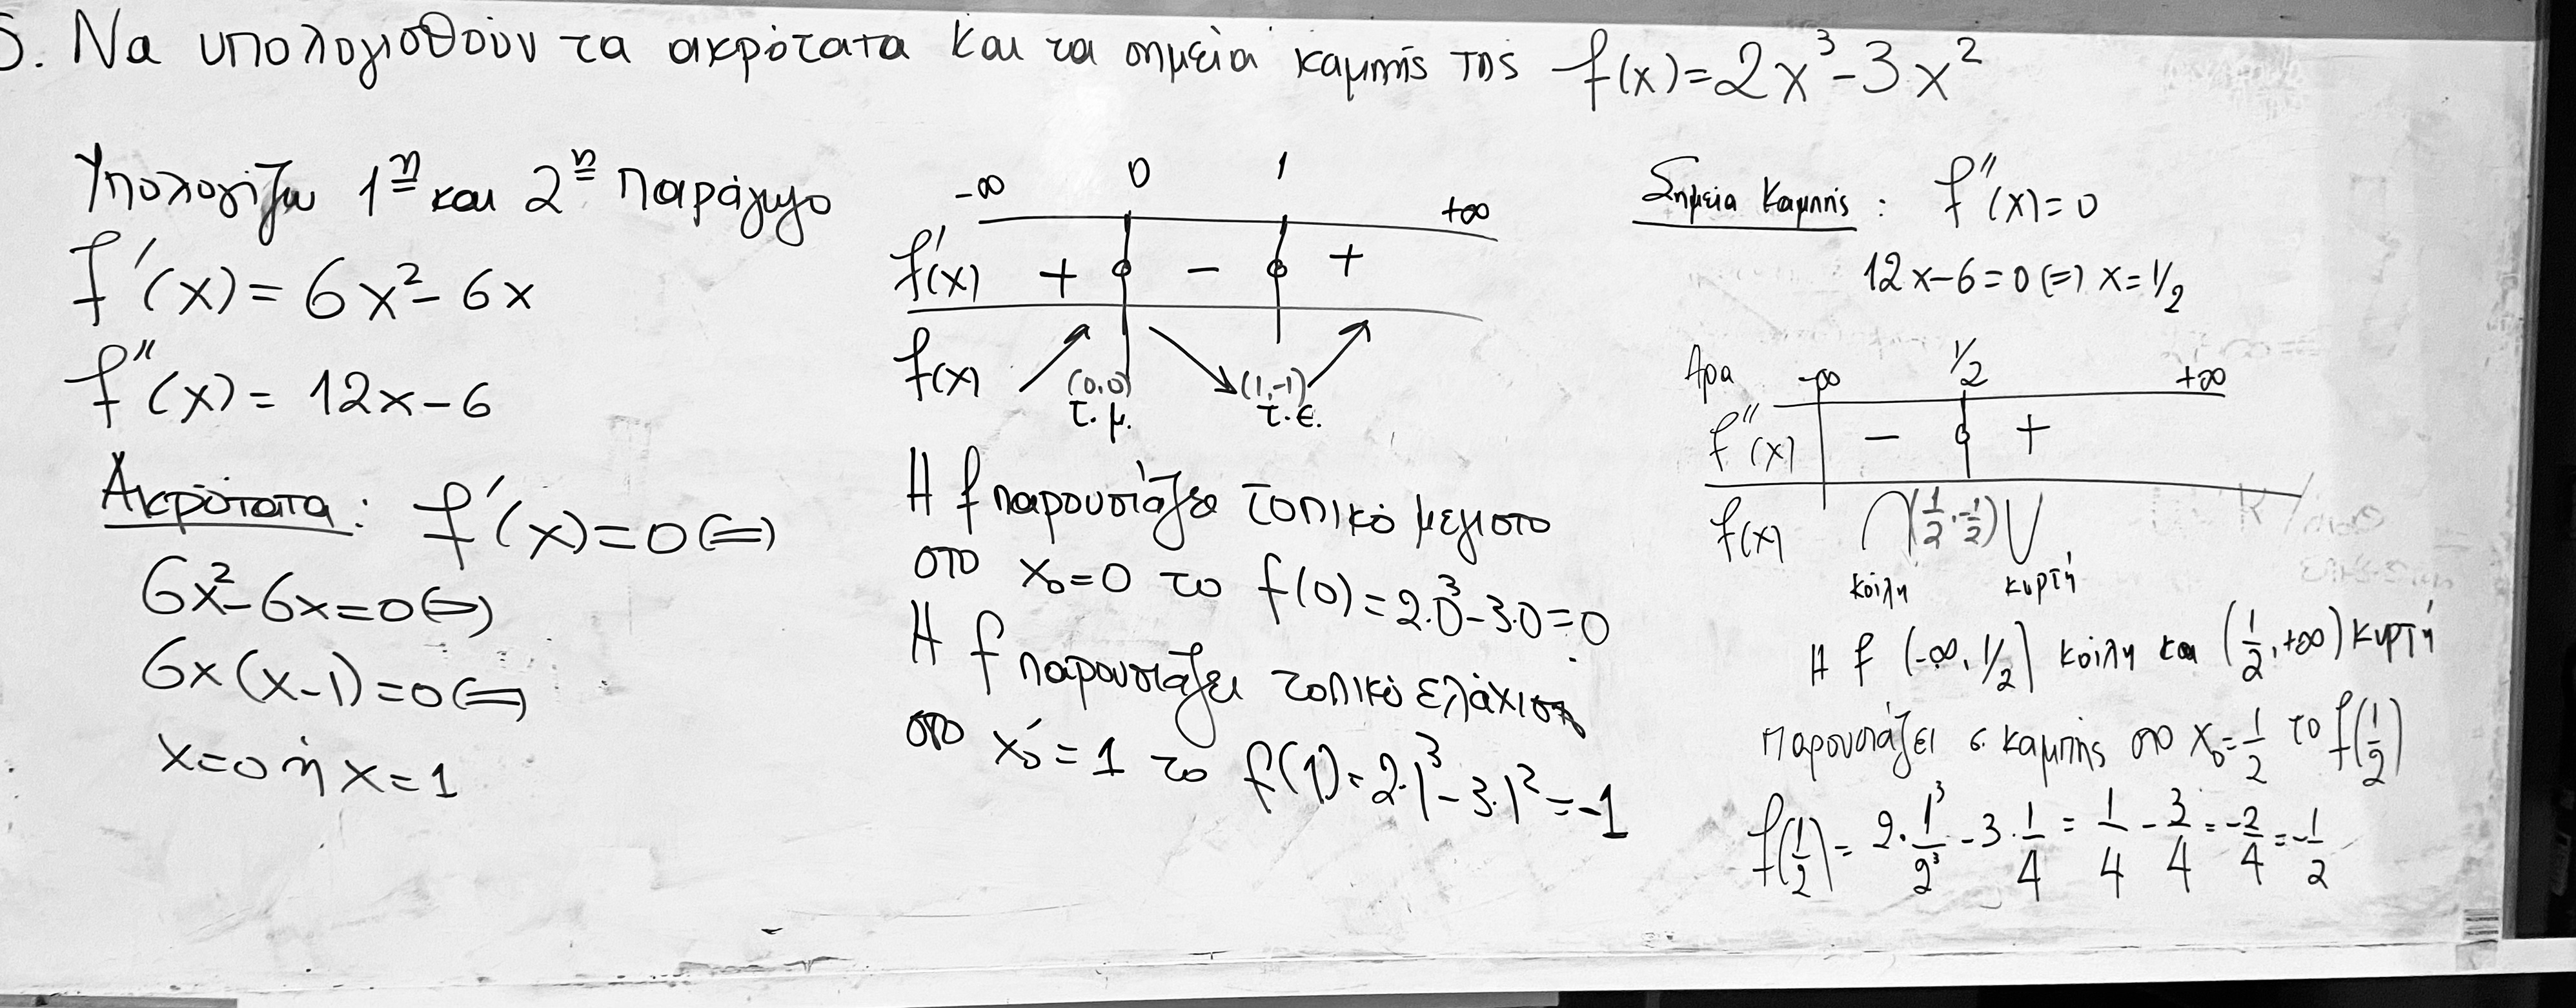 5. Να υπολογισθούν τα ακρότατα και τα σημεία καμπής της f(x)=2x³-3x²
Υπολογίζω 1η και 2η παράγωγο
f'(x)=6x²-6x
f''(x)=12x-6
Ακρότατα: f'(x)=0(=)
6x²-6x=0(=)
6x(x-1)=0(=)
x=0 ή x=1
-∞ 0 1 +∞
f'(x) + - +
f(x) (0,0) (1,-1)
τ.μ. τ.ε.
Η f παρουσιάζει τοπικό μεγιστο
στο x₀=0 το f(0)=2.0³-3.0=0
Η f παρουσιάζει τοπικό ελάχιστο
στο x₀'=1 το f(1)=2.1³-3.1²=-1
Σημεία Καμπής: f''(x)=0
12x-6=0(=) x=1/2
Άρα -∞ 1/2 +∞
f''(x) - +
f(x) (1/2,-1/2)
κοίλη κυρτή
Η f (-∞,1/2] κοίλη και (1/2,+∞) κυρτή
παρουσιάζει σ. καμπής στο x₀=1/2 το f(1/2)
f(1/2)=2.1³/2³-3.1/4=1/4-3/4=-2/4=-1/2